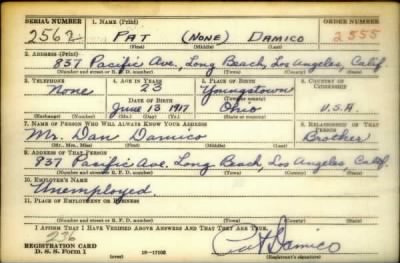 SERIAL NUMBER 1. NAME (Print) ORDER NUMBER
2562 PAT (NONE) DAMICO 2555
(First) (Middle) (Last)
2. ADDRESS (Print)
837 Pacific Ave., Long Beach, Los Angeles, Calif.
(Number and street or R. F. D. number) (Town) (County) (State)
3. TELEPHONE 4. AGE IN YEARS 5. PLACE OF BIRTH 6. COUNTRY OF CITIZENSHIP
None 23 Youngstown
DATE OF BIRTH (Town or county)
June 13 1917 Ohio U.S.A.
(Exchange) (Number) (Mo.) (Day) (Yr.) (State or country)
7. NAME OF PERSON WHO WILL ALWAYS KNOW YOUR ADDRESS 8. RELATIONSHIP OF THAT PERSON
Mr. Dan Damico Brother
(Mr., Mrs., Miss) (First) (Middle) (Last)
9. ADDRESS OF THAT PERSON
937 Pacific Ave. Long Beach, Los Angeles Calif.
(Number and street or R. F. D. number) (Town) (County) (State)
10. EMPLOYER'S NAME
Unemployed.
11. PLACE OF EMPLOYMENT OR BUSINESS
(Number and street or R. F. D. number) (Town) (County) (State)
I AFFIRM THAT I HAVE VERIFIED ABOVE ANSWERS AND THAT THEY ARE TRUE.
236
REGISTRATION CARD
D. S. S. Form 1 (over) 16—17105 Pat Damico
(Registrant's signature)